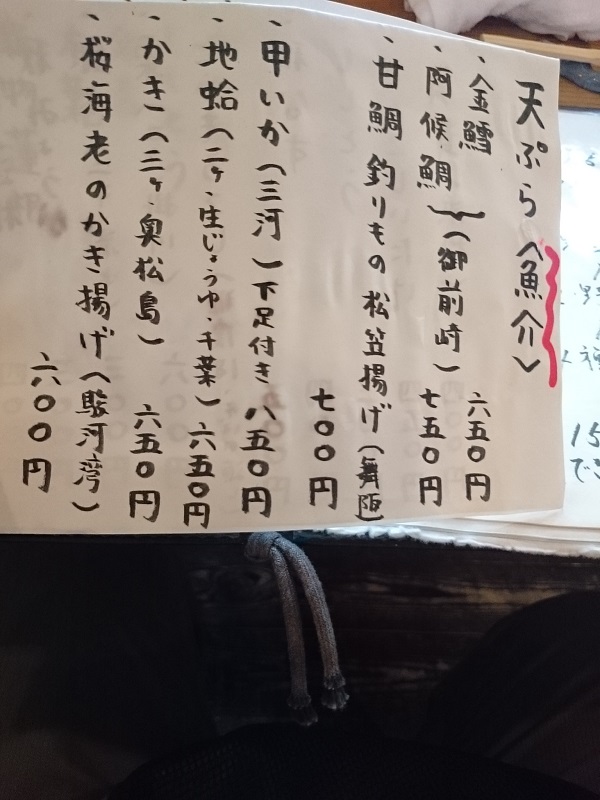 天ぷら（魚介）
、金鱈 六五〇円
、阿候鯛 （御前崎） 七五〇円
、甘鯛 釣りもの 松笠揚げ（舞阪）
七〇〇円
、甲いか（三河）下足付き 八五〇円
、地蛤（二ヶ・生じょうゆ・千葉）六五〇円
、かき（三ヶ・奥松島） 六五〇円
、桜海老のかき揚げ（駿河湾）
六〇〇円
15
でご